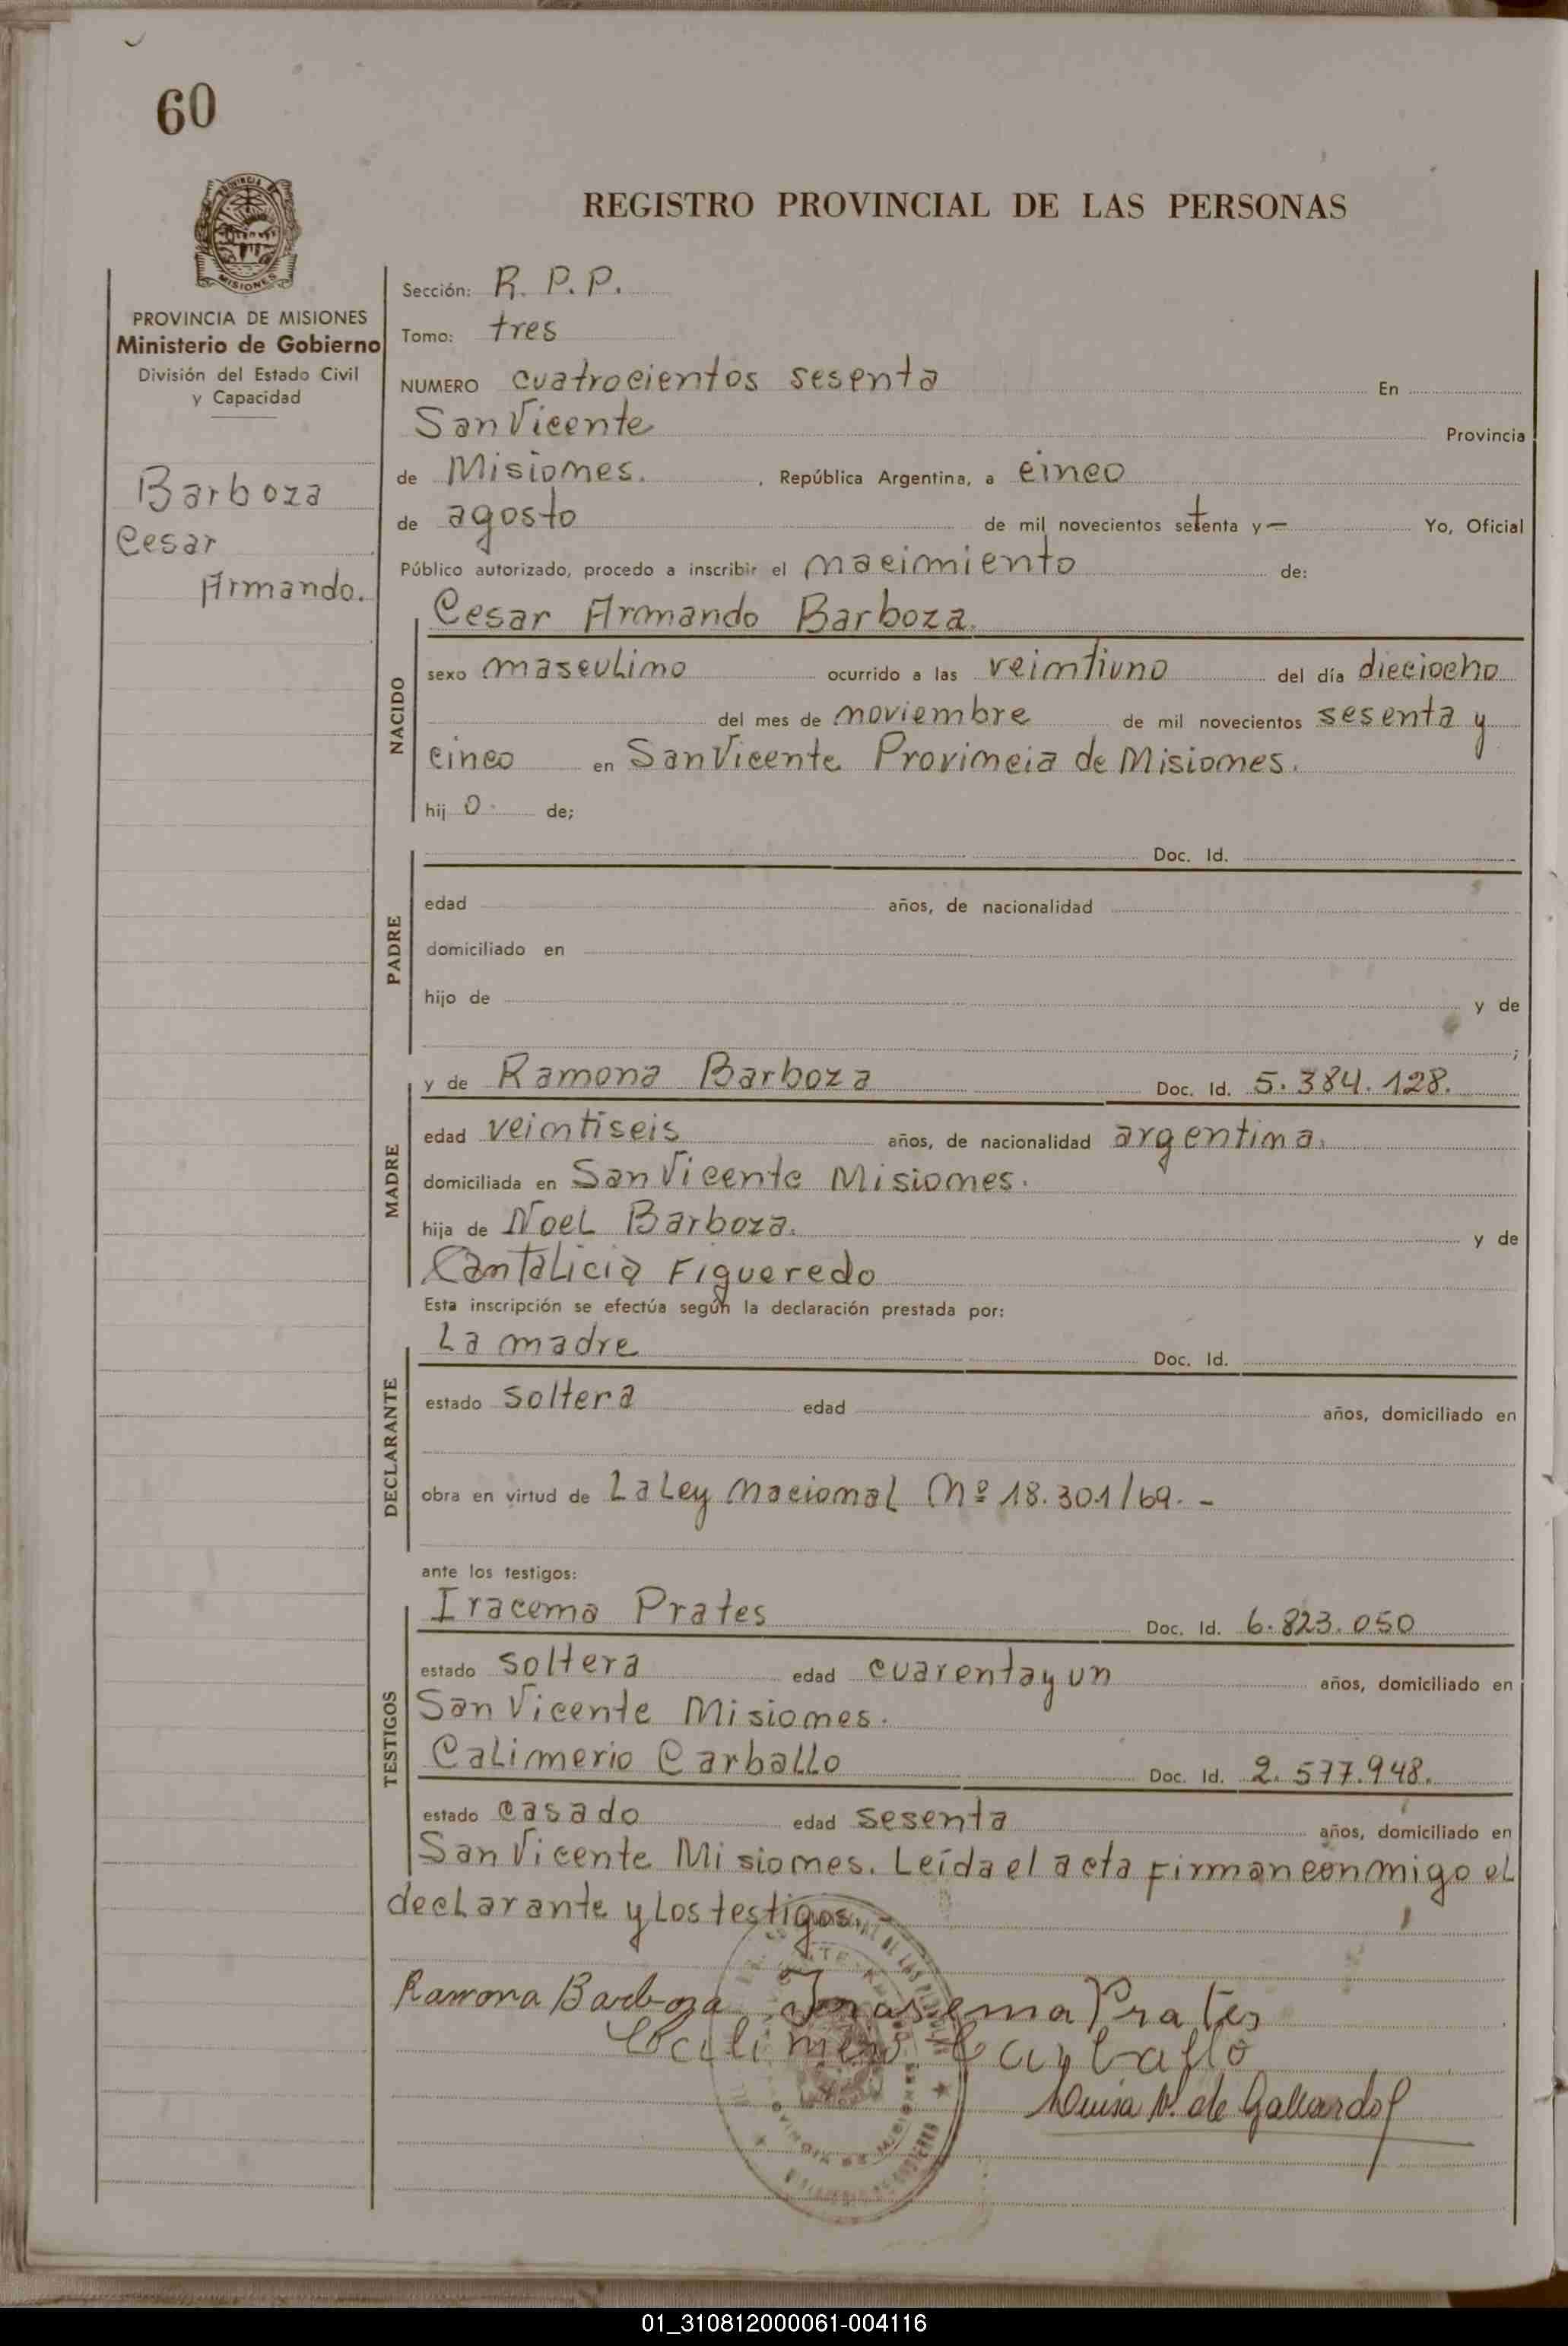 60
REGISTRO PROVINCIAL DE LAS PERSONAS
MISIONES
PROVINCIA DE MISIONES
Ministerio de Gobierno
División del Estado Civil
y Capacidad
Barboza
Cesar
Armando.
Sección: R. P. P.
Tomo: tres
NUMERO cuatrocientos sesenta En
San Vicente Provincia
de Misiones. , República Argentina, a cinco
de agosto de mil novecientos setenta y — Yo, Oficial
Público autorizado, procedo a inscribir el nacimiento de:
Cesar Armando Barboza.
NACIDO
sexo masculino ocurrido a las veintiuno del día dieciocho
del mes de noviembre de mil novecientos sesenta y
cinco en San Vicente Provincia de Misiones.
hij o. de;
PADRE
Doc. Id.
edad años, de nacionalidad
domiciliado en
hijo de y de
;
MADRE
y de Ramona Barboza Doc. Id. 5.384.128.
edad veintiseis años, de nacionalidad argentina.
domiciliada en San Vicente Misiones.
hija de Noel Barboza. y de
Cantalicia Figueredo
Esta inscripción se efectúa según la declaración prestada por:
DECLARANTE
La madre Doc. Id.
estado soltera edad años, domiciliado en
obra en virtud de La Ley Nacional Nº 18.301/69. -
ante los testigos:
TESTIGOS
Iracema Prates Doc. Id. 6.823.050
estado soltera edad cuarenta y un años, domiciliado en
San Vicente Misiones.
Calimerio Carballo Doc. Id. 2.577.948.
estado casado edad sesenta años, domiciliado en
San Vicente Misiones. Leída el acta firman conmigo el
declarante y los testigos. -
Ramona Barboza Irasema Prates
Calimerio Carballo
Luisa N. de Gallardo
01_310812000061-004116